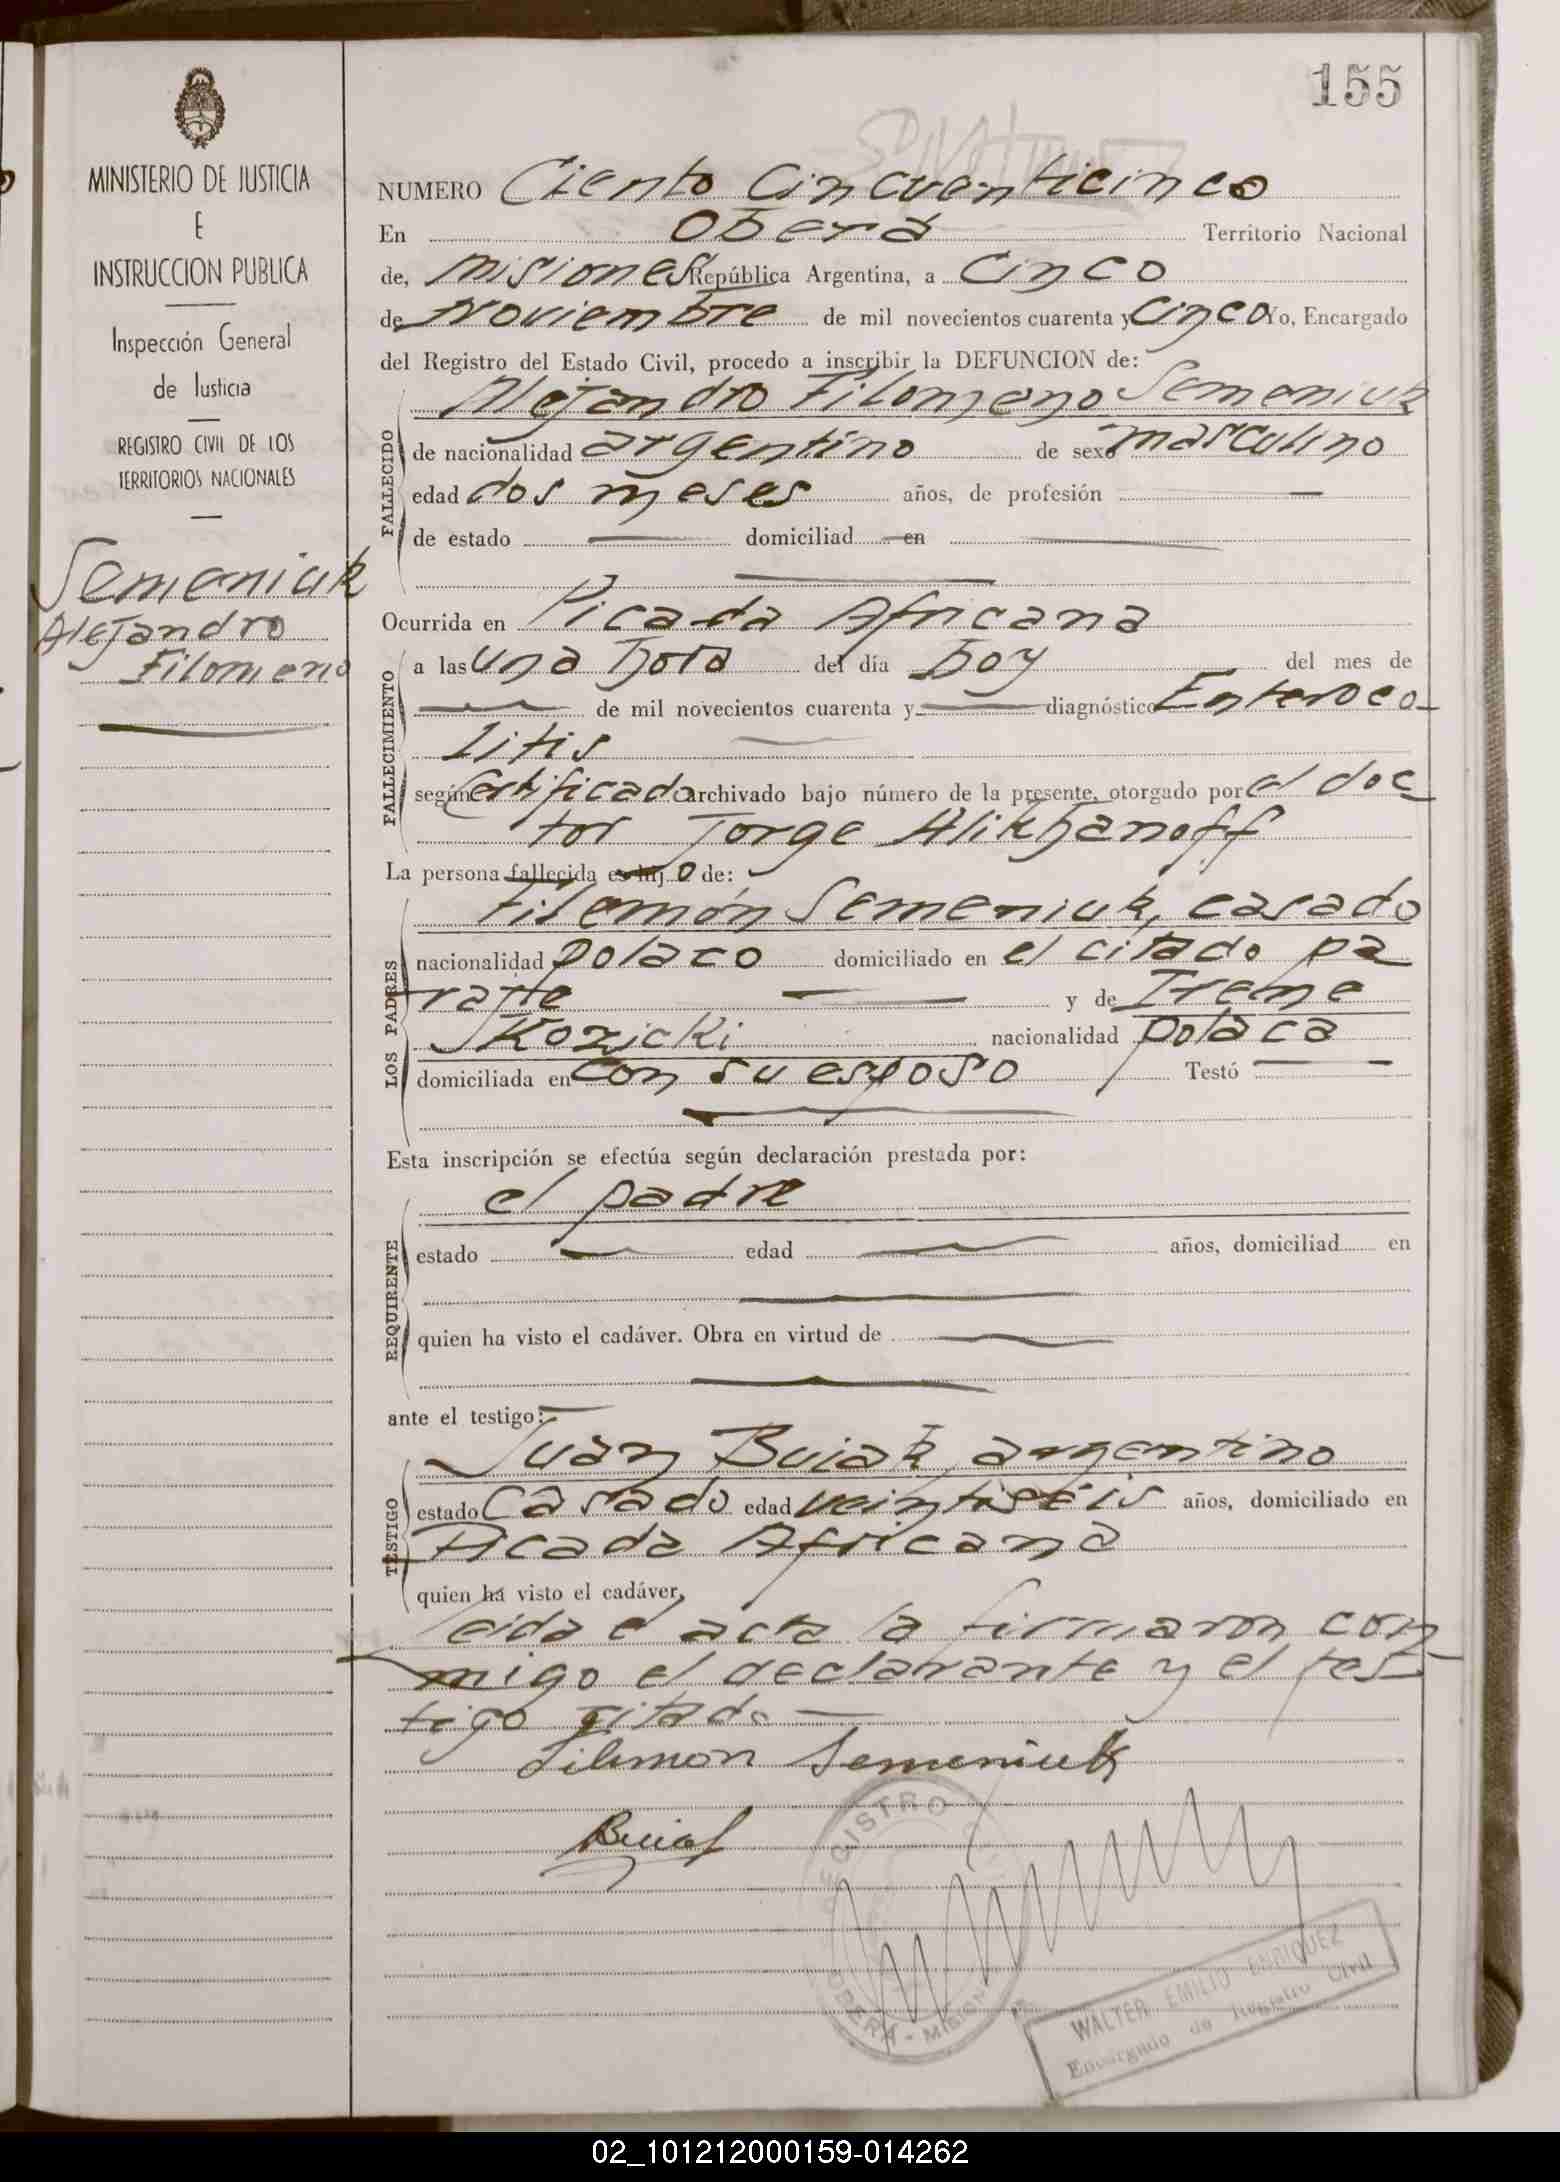 155
MINISTERIO DE JUSTICIA
E
INSTRUCCION PUBLICA
Inspección General
de Justicia
REGISTRO CIVIL DE LOS
TERRITORIOS NACIONALES
Semeniuk
Alejandro
Filomeno
NUMERO Ciento Cincuenticinco
En Oberá Territorio Nacional
de, Misiones República Argentina, a Cinco
de Noviembre de mil novecientos cuarenta y Cinco Yo, Encargado
del Registro del Estado Civil, procedo a inscribir la DEFUNCION de:
FALLECIDO
Alejandro Filomeno Semeniuk
de nacionalidad argentino de sexo masculino
edad dos meses años, de profesión —
de estado — domiciliad — en —
Ocurrida en Picada Africana
FALLECIMIENTO
a las una hora del día hoy del mes de
— de mil novecientos cuarenta y — diagnóstico Enteroco-
litis
según Certificado archivado bajo número de la presente, otorgado por el doc-
tor Jorge Alikhanoff
La persona fallecida es hijo de:
LOS PADRES
Filemón Semeniuk, casado
nacionalidad polaco domiciliado en el citado pa
raje — y de Irene
Kozicki nacionalidad polaca
domiciliada en con su esposo Testó —
Esta inscripción se efectúa según declaración prestada por:
REQUIRENTE
el padre
estado — edad — años, domiciliad en
quien ha visto el cadáver. Obra en virtud de —
ante el testigo:
TESTIGO
Juan Buiak, argentino
estado Casado edad veintiséis años, domiciliado en
Picada Africana
quien ha visto el cadáver,
Leida el acta la firmaron con
migo el declarante y el tes-
tigo citado —
Filemon Semeniuk
Buiak
REGISTRO
OBERA - MISIONES
WALTER EMILIO ENRIQUEZ
Encargado de Registro Civil
02_101212000159-014262